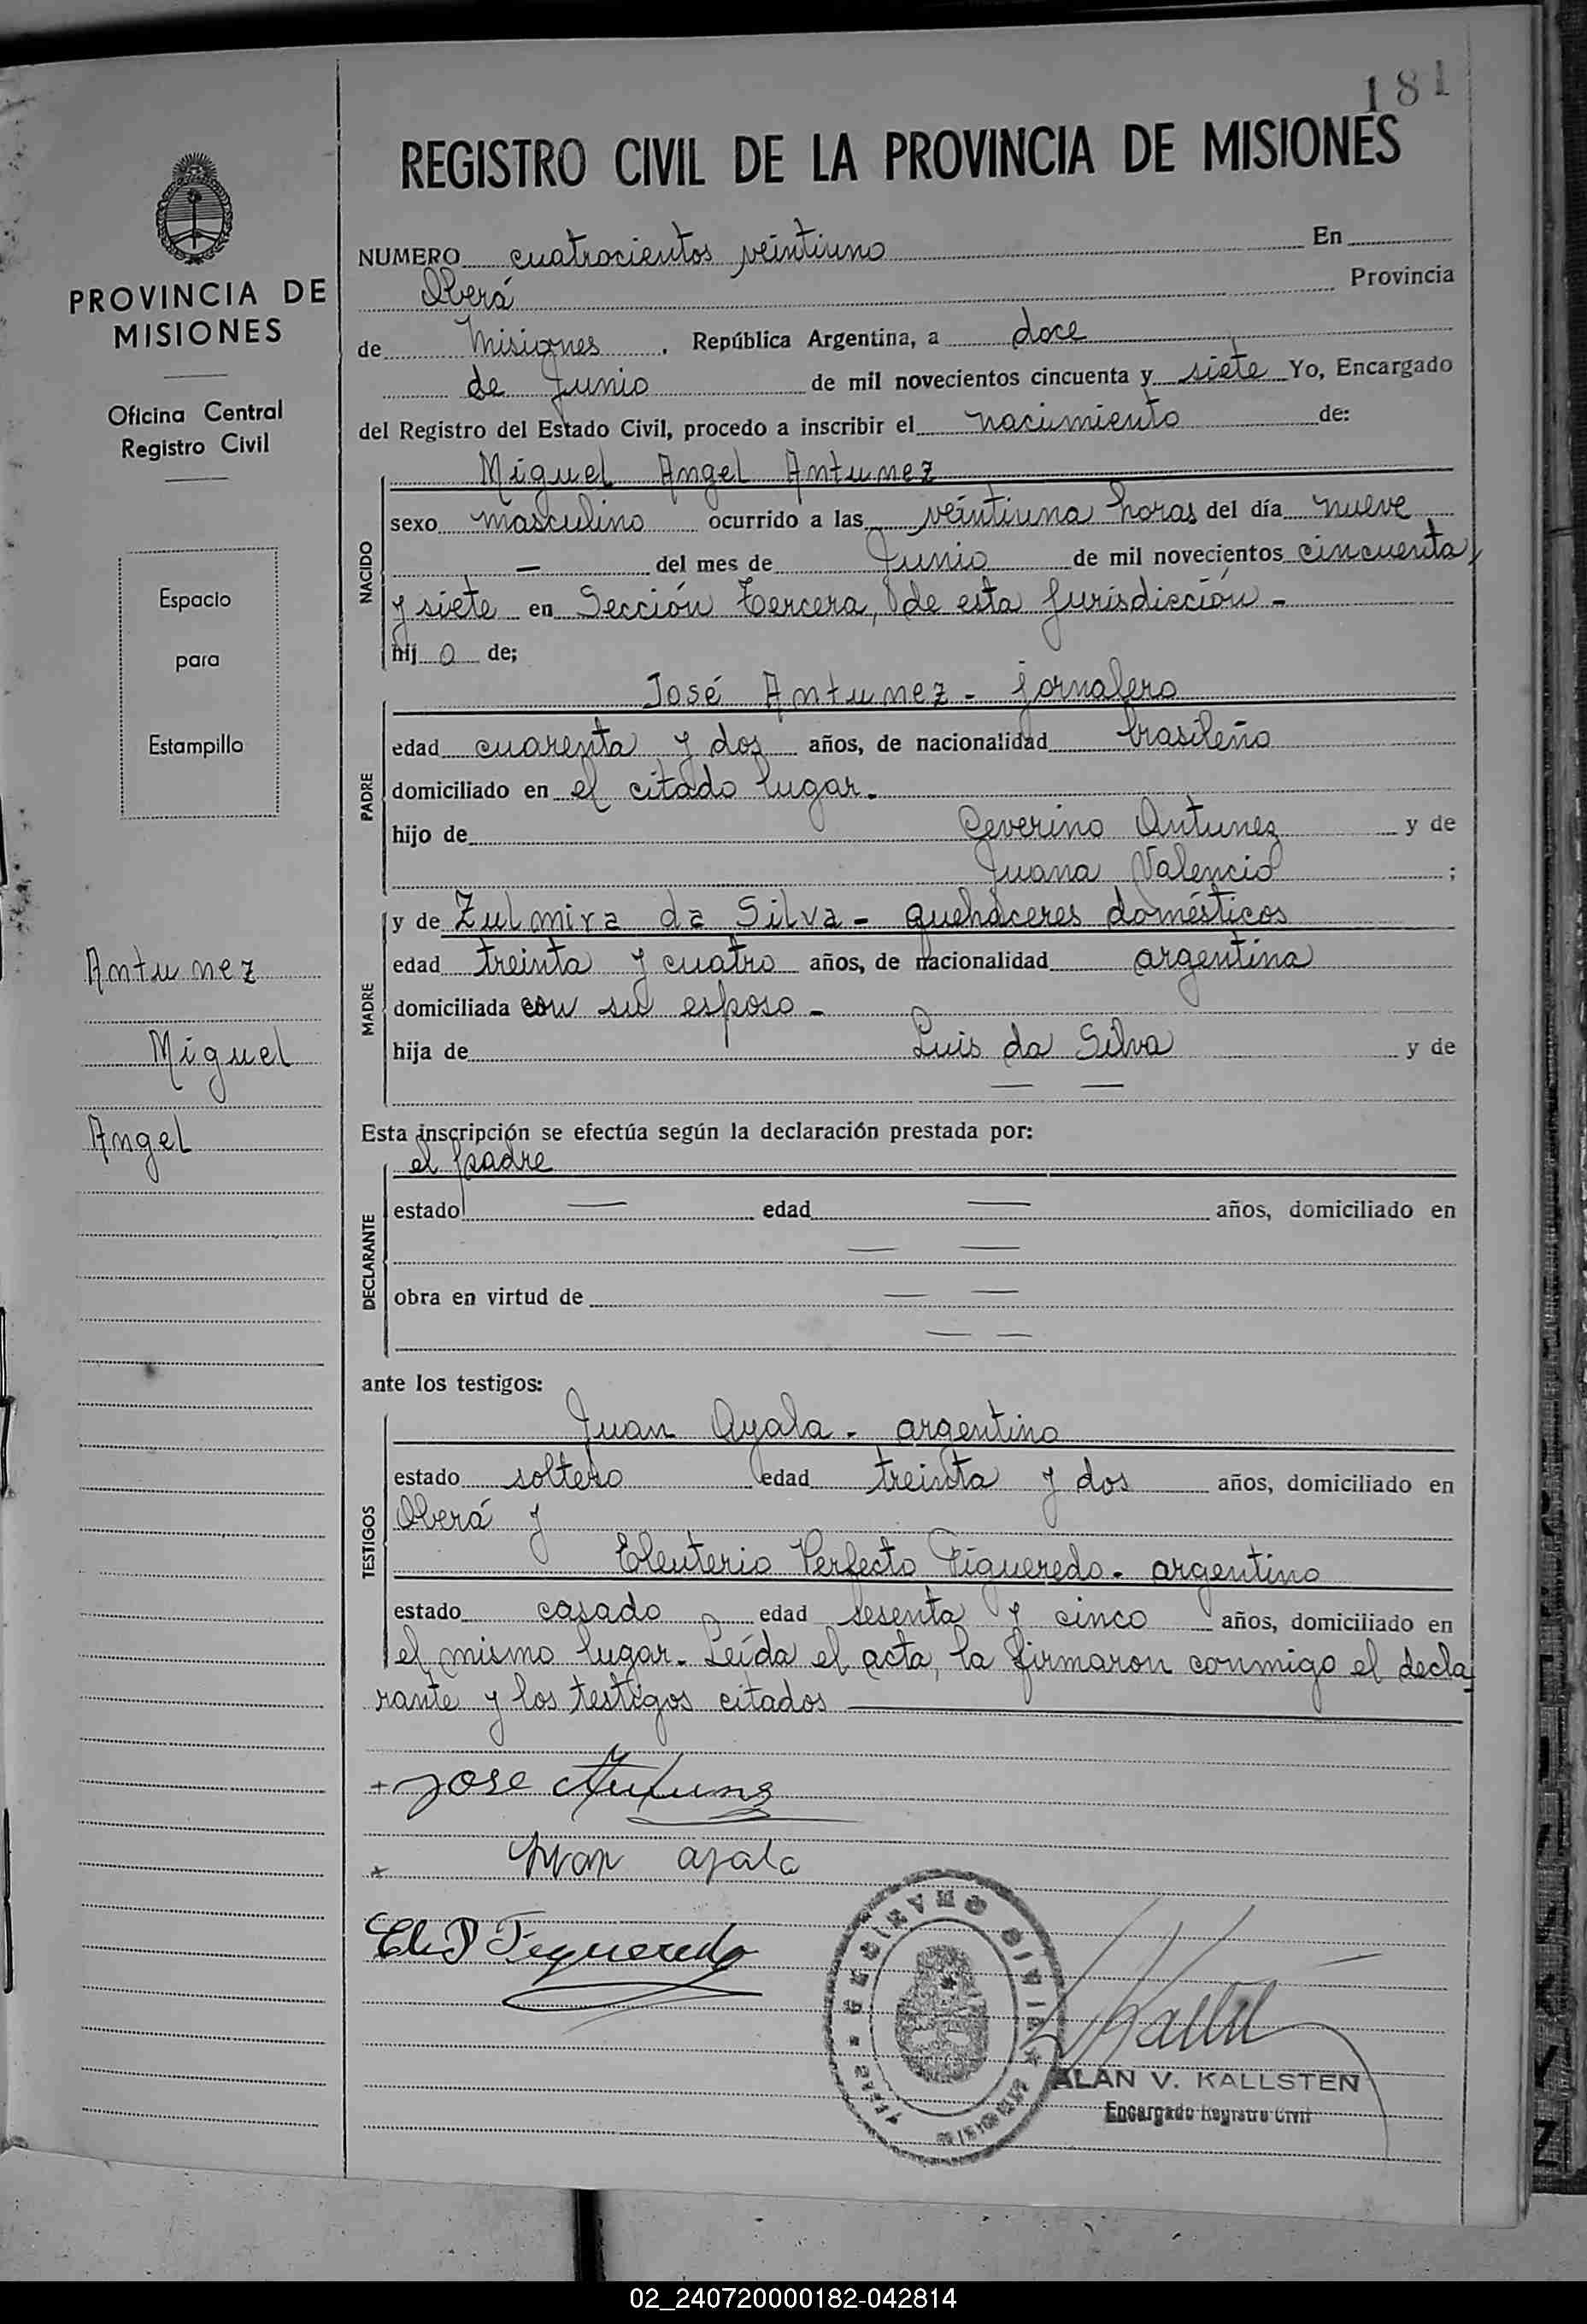 181
REGISTRO CIVIL DE LA PROVINCIA DE MISIONES
PROVINCIA DE
MISIONES
Oficina Central
Registro Civil
Espacio
para
Estampillo
Antunez
Miguel
Angel
NUMERO cuatrocientos veintiuno En
Oberá Provincia
de Misiones, República Argentina, a doce
de Junio de mil novecientos cincuenta y siete Yo, Encargado
del Registro del Estado Civil, procedo a inscribir el nacimiento de:
NACIDO
Miguel Angel Antunez
sexo masculino ocurrido a las veintiuna horas del día nueve
— del mes de Junio de mil novecientos cincuenta
y siete en Sección Tercera, de esta Jurisdicción -
hij o de;
PADRE
José Antunez - jornalero
edad cuarenta y dos años, de nacionalidad brasileño
domiciliado en el citado lugar.
hijo de Severino Antunez y de
Juana Valencio ;
MADRE
y de Zulmira da Silva - quehaceres domésticos
edad treinta y cuatro años, de nacionalidad argentina
domiciliada con su esposo -
hija de Luis da Silva y de
— —
Esta inscripción se efectúa según la declaración prestada por:
DECLARANTE
el padre
estado — edad — años, domiciliado en
— —
obra en virtud de — —
— —
ante los testigos:
TESTIGOS
Juan Ayala - argentino
estado soltero edad treinta y dos años, domiciliado en
Oberá y
Eleuterio Perfecto Figueredo - argentino
estado casado edad sesenta y cinco años, domiciliado en
el mismo lugar. Leída el acta, la firmaron conmigo el decla
rante y los testigos citados
+ Jose Antunez
x Juan ayala
El. P Figueredo
ALAN V. KALLSTEN
Encargado Registro Civil
02_240720000182-042814